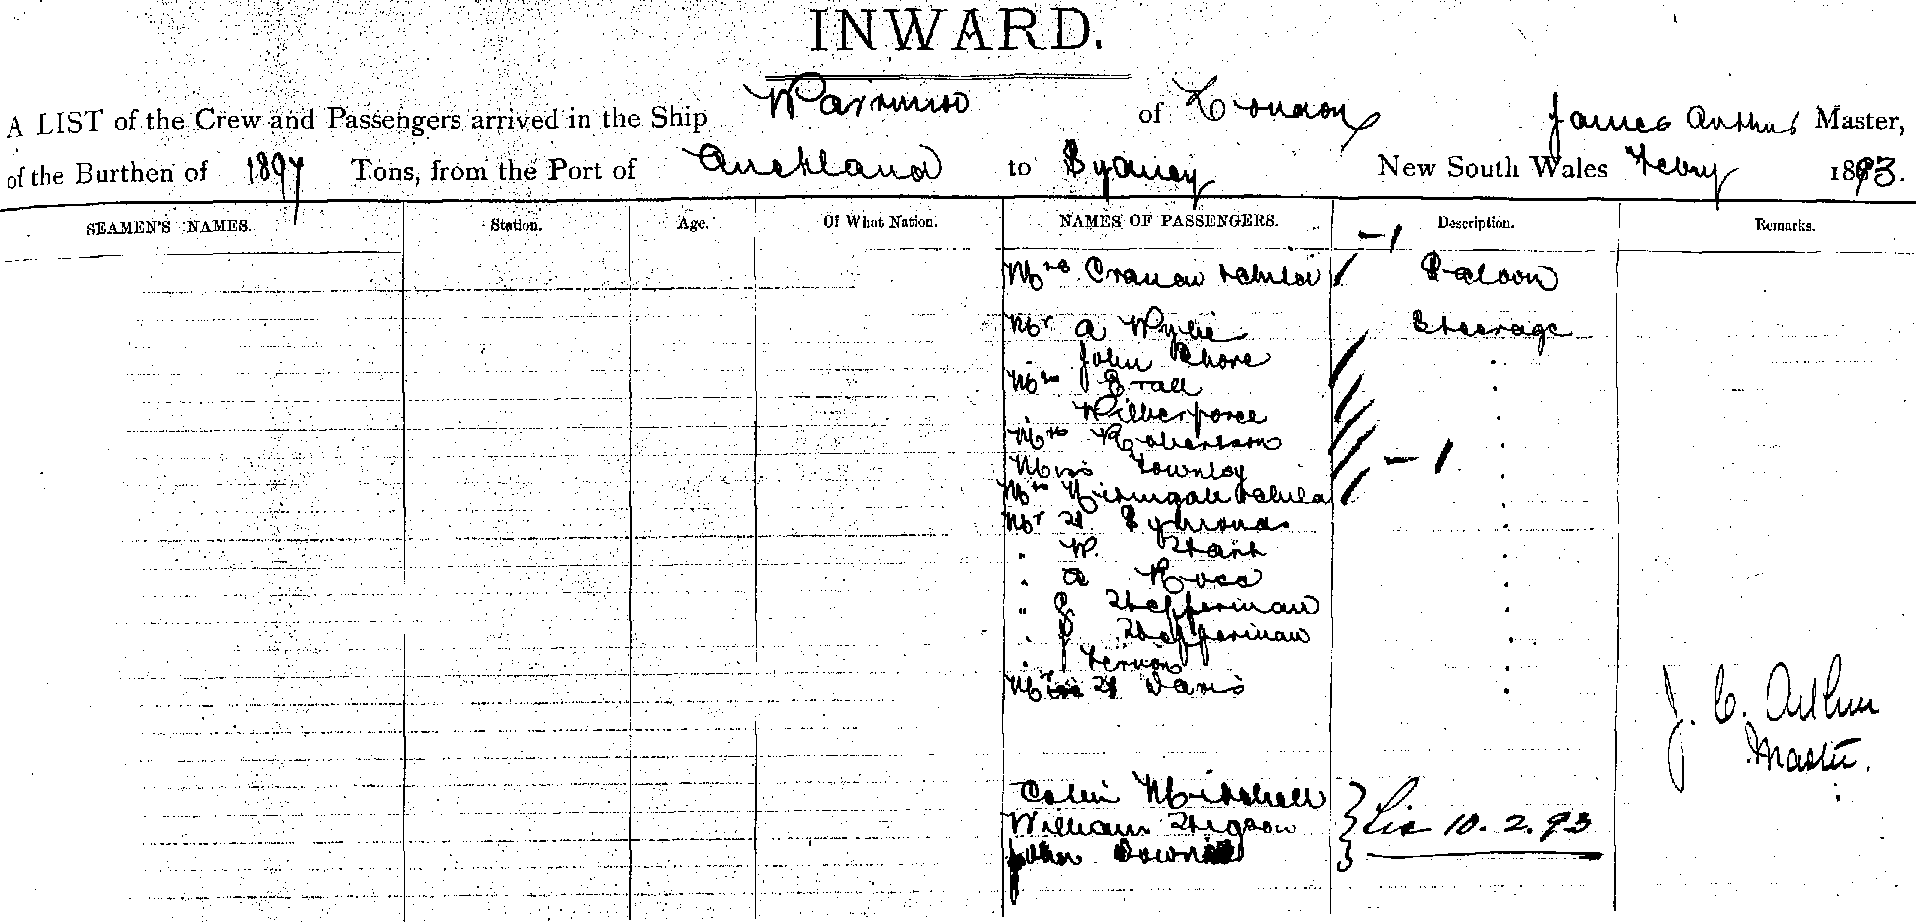 INWARD.
A LIST of the Crew and Passengers arrived in the Ship Warrimoo of London James Arthur Master,
of the Burthen of 1897 Tons, from the Port of Auckland to Sydney New South Wales Feby 1893.
SEAMEN'S NAMES. Station. Age. Of What Nation. NAMES OF PASSENGERS. Description. Remarks.
- 1
Mrs & child Saloon
Mr A Wylie Steerage
" John Shore
Mrs
Wilberforce
Mrs Robertson
Miss Townley - 1
Mrs Nitingale & child
Mr H Symonds
" W.
" A Ross
" Heffernan
" J Heffernan
" J Vernon
Miss H Davis
J. C. Arthur
Master.
Colin Mitchell
William Higson 10.2.93
John